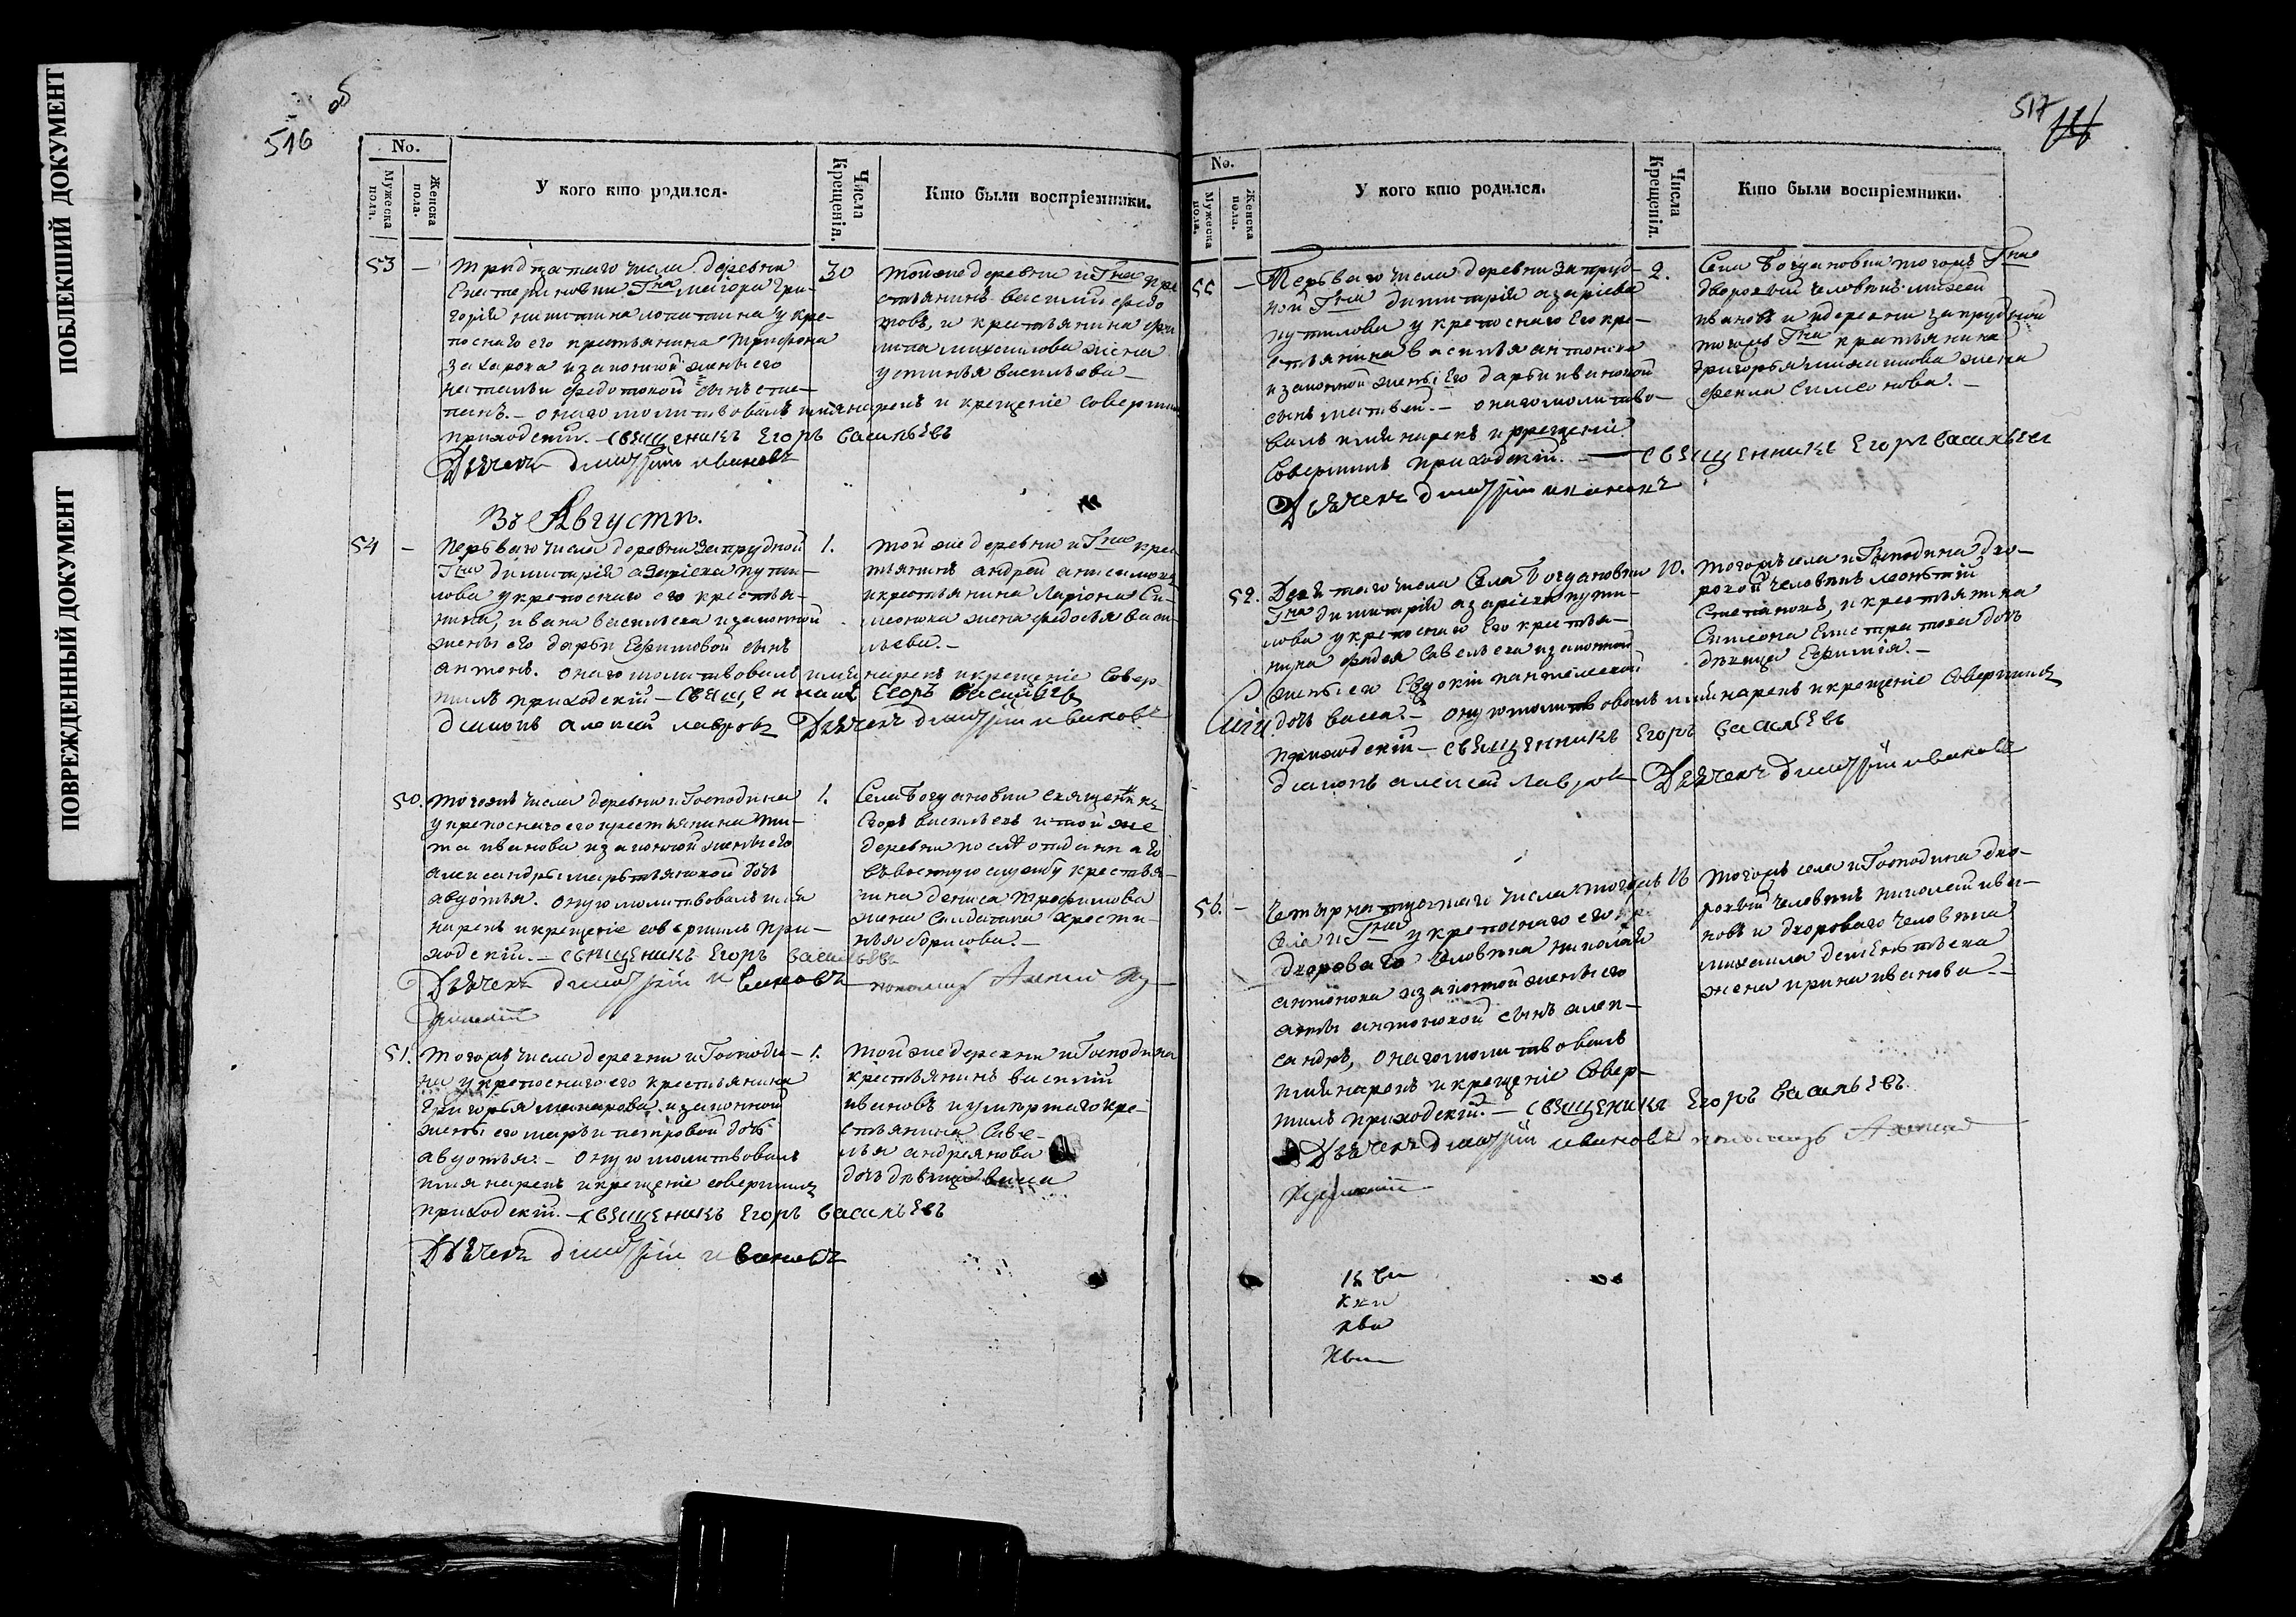 ПОБЛЕКШИЙ ДОКУМЕНТ
ПОВРЕЖДЕННЫЙ ДОКУМЕНТ
об
516
No.
Мужеска пола.
Женска пола.
У кого кто родился.
Числа Крещенія.
Кто были воспріемники.
53 —
тридцатаго числа деревни
Екатериновки Гна маіора Гри-
горія никитина у кре-
поснаго его крестьянина трифона
захарова и законной жены его
натальи федотовой сынъ сте-
панъ. — онаго молитвовалъ имя нарекъ и крещеніе соверши
приходскій. — священикъ Егоръ васильевъ
Дьячекъ димитрій ивановъ
30
той же деревни и Гна кре
стьянинъ василий федо
товъ, и крестьянина фи
липа михаилова жена
устинья васильева —
Въ Августѣ.
54 —
перваго числа деревни запрудной
Гна димитрія азаріева пути-
лова у крепоснаго его крестья-
нина, ивана васильева и законной
жены его дарьи Ефимовой сынъ
антонъ. онаго молитвовалъ имя нарекъ и крещеніе совер-
шилъ приходскій — священикъ Егоръ васильевъ
диаконъ алексей лавровъ Дьячекъ димитрій ивановъ
1.
той же деревни и Гна крес
тьянинъ андрей анисимовъ
и крестьянина Лариона Си-
монова жена федосья васи-
льева. —
50.
тогожъ числа деревни и Господина
у крепоснаго его крестьянина ти-
та иванова и законной жены его
александры мартьяновой дочь
авдотья. оную молитвовалъ имя
нарекъ и крещеніе совершилъ при-
ходскій. — священикъ Егоръ васильевъ
Дьячекъ димитрій ивановъ пономарь
1.
Села Богдановки священникъ
Егоръ васильевъ и той же
деревни отданнаго
въ воен­ную службу крестья-
нина дениса трофимова
жена Салдатка хрести-
нья борисова. —
51.
тогожъ числа деревни и Господи-
на у крепоснаго его крестьянина
Григорья макарова и законной
жены его марьи петровой дочь
авдотья — оную молитвовалъ
имя нарекъ и крещеніе совершилъ
приходскій. — священикъ Егоръ васильевъ
Дьячекъ димитрій ивановъ
1.
той же деревни и Господина
крестьянинъ василій
ивановъ и умершаго кре-
стьянина Саве-
лья андреянова
дочь девица васа
517
No.
Мужеска пола.
Женска пола.
У кого кто родился.
Числа Крещенія.
Кто были воспріемники.
55 —
Перваго числа деревни запруд-
ной Гна димитрія азаріева
путилова у крепоснаго Его кре-
стьянина василья антонова
и законной жены Его дарьи ивановой
сынъ матвей. — онаго молитво-
валъ имя нарекъ и крещеніе
Совершилъ приходскій. — священникъ Егоръ васильевъ
Дьячекъ димитрій ивановъ
2.
Села Богдановки тогожъ Гна
дворовый человѣкъ михей
ивановъ и деревни запрудной
тогожъ Гна крестьянина
григорья михаилова жена
фекла Симеонова. —
52.
Девятаго числа Села Богдановки
Гна димитрія азаріева пути-
лова у крепоснаго Его крестья-
нина фадея Савельева и законной
жены его Евдокіи пантелеевой
дочь васса. — оную молитвовалъ имя нарекъ и крещеніе Совершилъ
приходскій — священникъ Егоръ васильевъ
диаконъ алексей лавровъ Дьячекъ димитрій ивановъ
10.
тогожъ села и Господина дво-
ровой человѣкъ леонтій
Степановъ, и крестьянина
Симеона Емстратова дочь
девица Ефимія. —
56. —
четырнатцатаго числа тогожъ
Села и Гна у крепоснаго его
двороваго человѣка николая
антонова и законной жены его
антоновой сынъ алек-
сандръ, онаго молитвовалъ
имя нарекъ и крещеніе Совер-
шилъ приходскій. — священикъ Егоръ васильевъ.
Дьячекъ димитрій ивановъ пономарь
тогожъ села и Господина дво-
ровый человѣкъ николай ива-
новъ и двороваго человѣка
михаила дементьева
жена ирина иванова. —